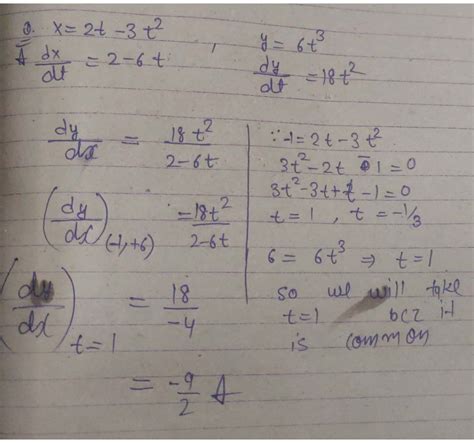 Q. x = 2t - 3t² , y = 6t³
A dx/dt = 2 - 6t dy/dt = 18t²
dy/dx = 18t²/2-6t
(dy/dx)(-1,+6) = 18t²/2-6t
(dy/dx)t=1 = 18/-4
= -9/2 A
∵ -1 = 2t - 3t²
3t² - 2t - 1 = 0
3t² - 3t + t - 1 = 0
t = 1 , t = -1/3
6 = 6t³ ⇒ t = 1
so we will take
t = 1 bcz it
is common